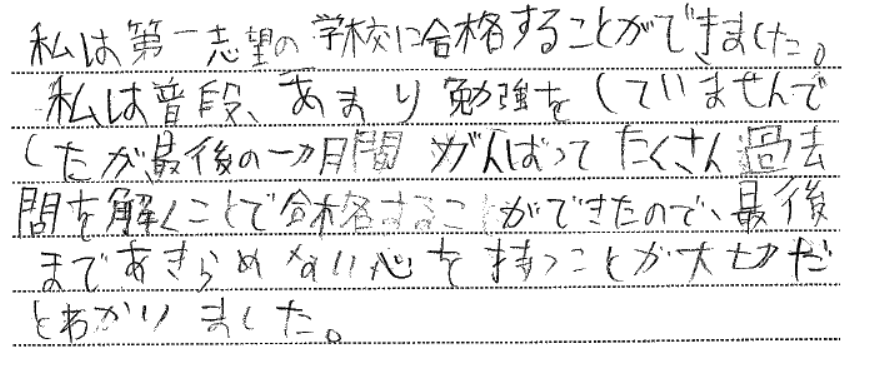 私は第一志望の学校に合格することができました。
私は普段、あまり勉強をしていませんで
したが、最後の一カ月間がんばってたくさん過去
問を解くことで合格することができたので、最後
まであきらめない心を持つことが大切だ
とわかりました。